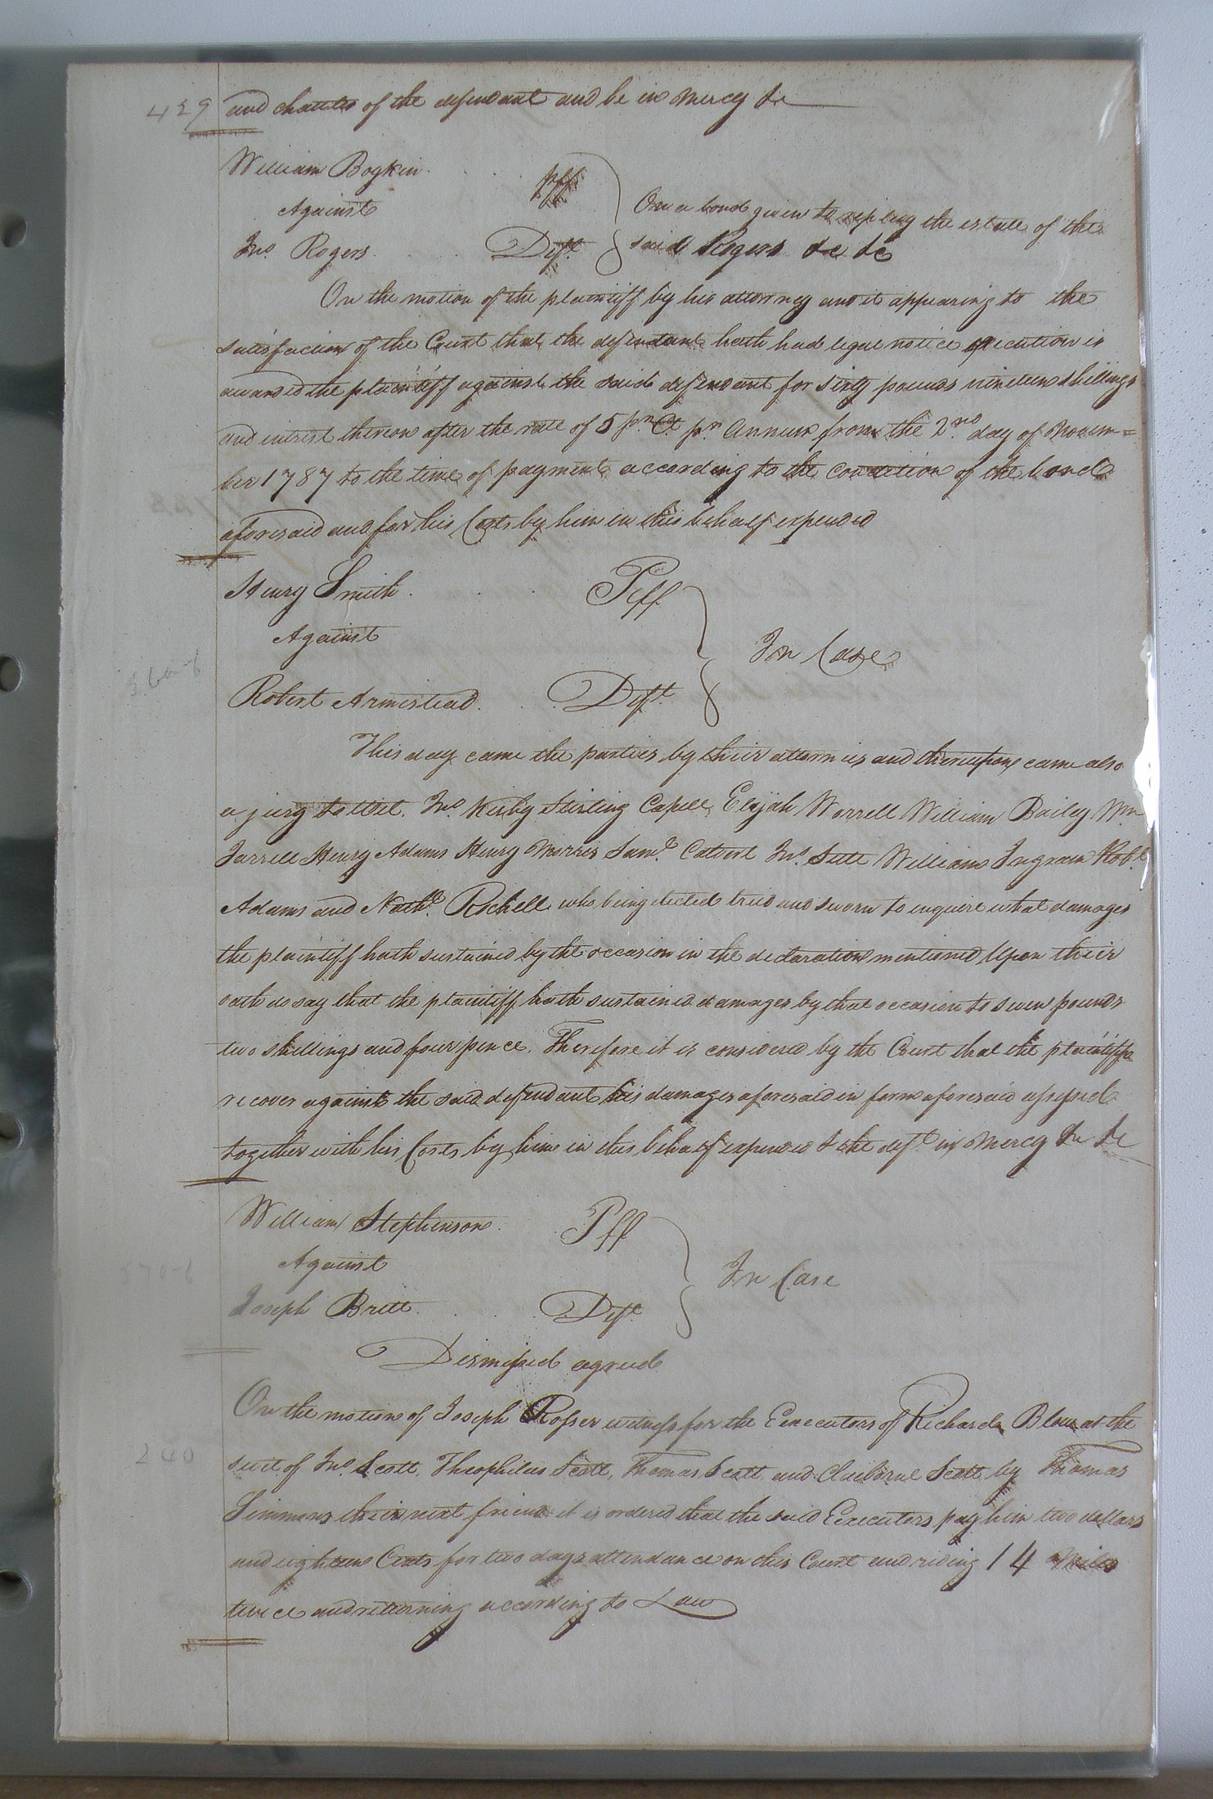 429 and chattles of the defendant and be in mercy &c
William Boykin Plff
Against
On a bond given to replevy the estate of the
Jno. Rogers Deft. said Rogers &c &c
On the motion of the plaintiff by his attorney and it appearing to the
satisfaction of the Court that the defendant hath had legal notice execution is
awarded the plaintiff against the said defendant for sixty pounds nineteen shillings
and intrest thereon after the rate of 5 pr. Ct. pr. Annum from the 2nd day of Novem=
ber 1787 to the time of payment according to the condition of the bond
aforesaid and for his Costs by him in this behalf expended
Henry Smith Plff
Against
In Case
Robert Armistead Deft.
This day came the parties by their attornies and thereupon came also
a jury to wit. Jno. Kirby Stirling Capell, Elijah Worrell William Bailey Wm
Jarrell Henry Adams Henry Morris Saml. Calvert Jno. Sills William Ingram Robt.
Adams and Nathl. Rochell who being elected tried and sworn to enquire what damages
the plaintiff hath sustained by the occasion in the declaration mentioned, Upon their
oath do say that the plaintiff hath sustained damages by that occasion to seven pounds
two shillings and four pence. Therefore it is considered by the Court that the plaintiff
recover against the said defendant his damages aforesaid in form aforesaid assessed
together with his Costs by him in this behalf expended & the deft. in mercy &c &c
William Stephenson Plff
Against
In Case
Joseph Britt Deft
Dismissed agreed
On the motion of Joseph Rosser witness for the Executors of Richard Blow at the
240
suit of Jno. Scott, Theophilus Scott, Thomas Scott and Claiborne Scott by Thomas
Simmons their next friend it is ordered that the said Executors pay him two dollars
and eighteen Cents for two days attendance on this Court and riding 14 Miles
twice and returning according to Law